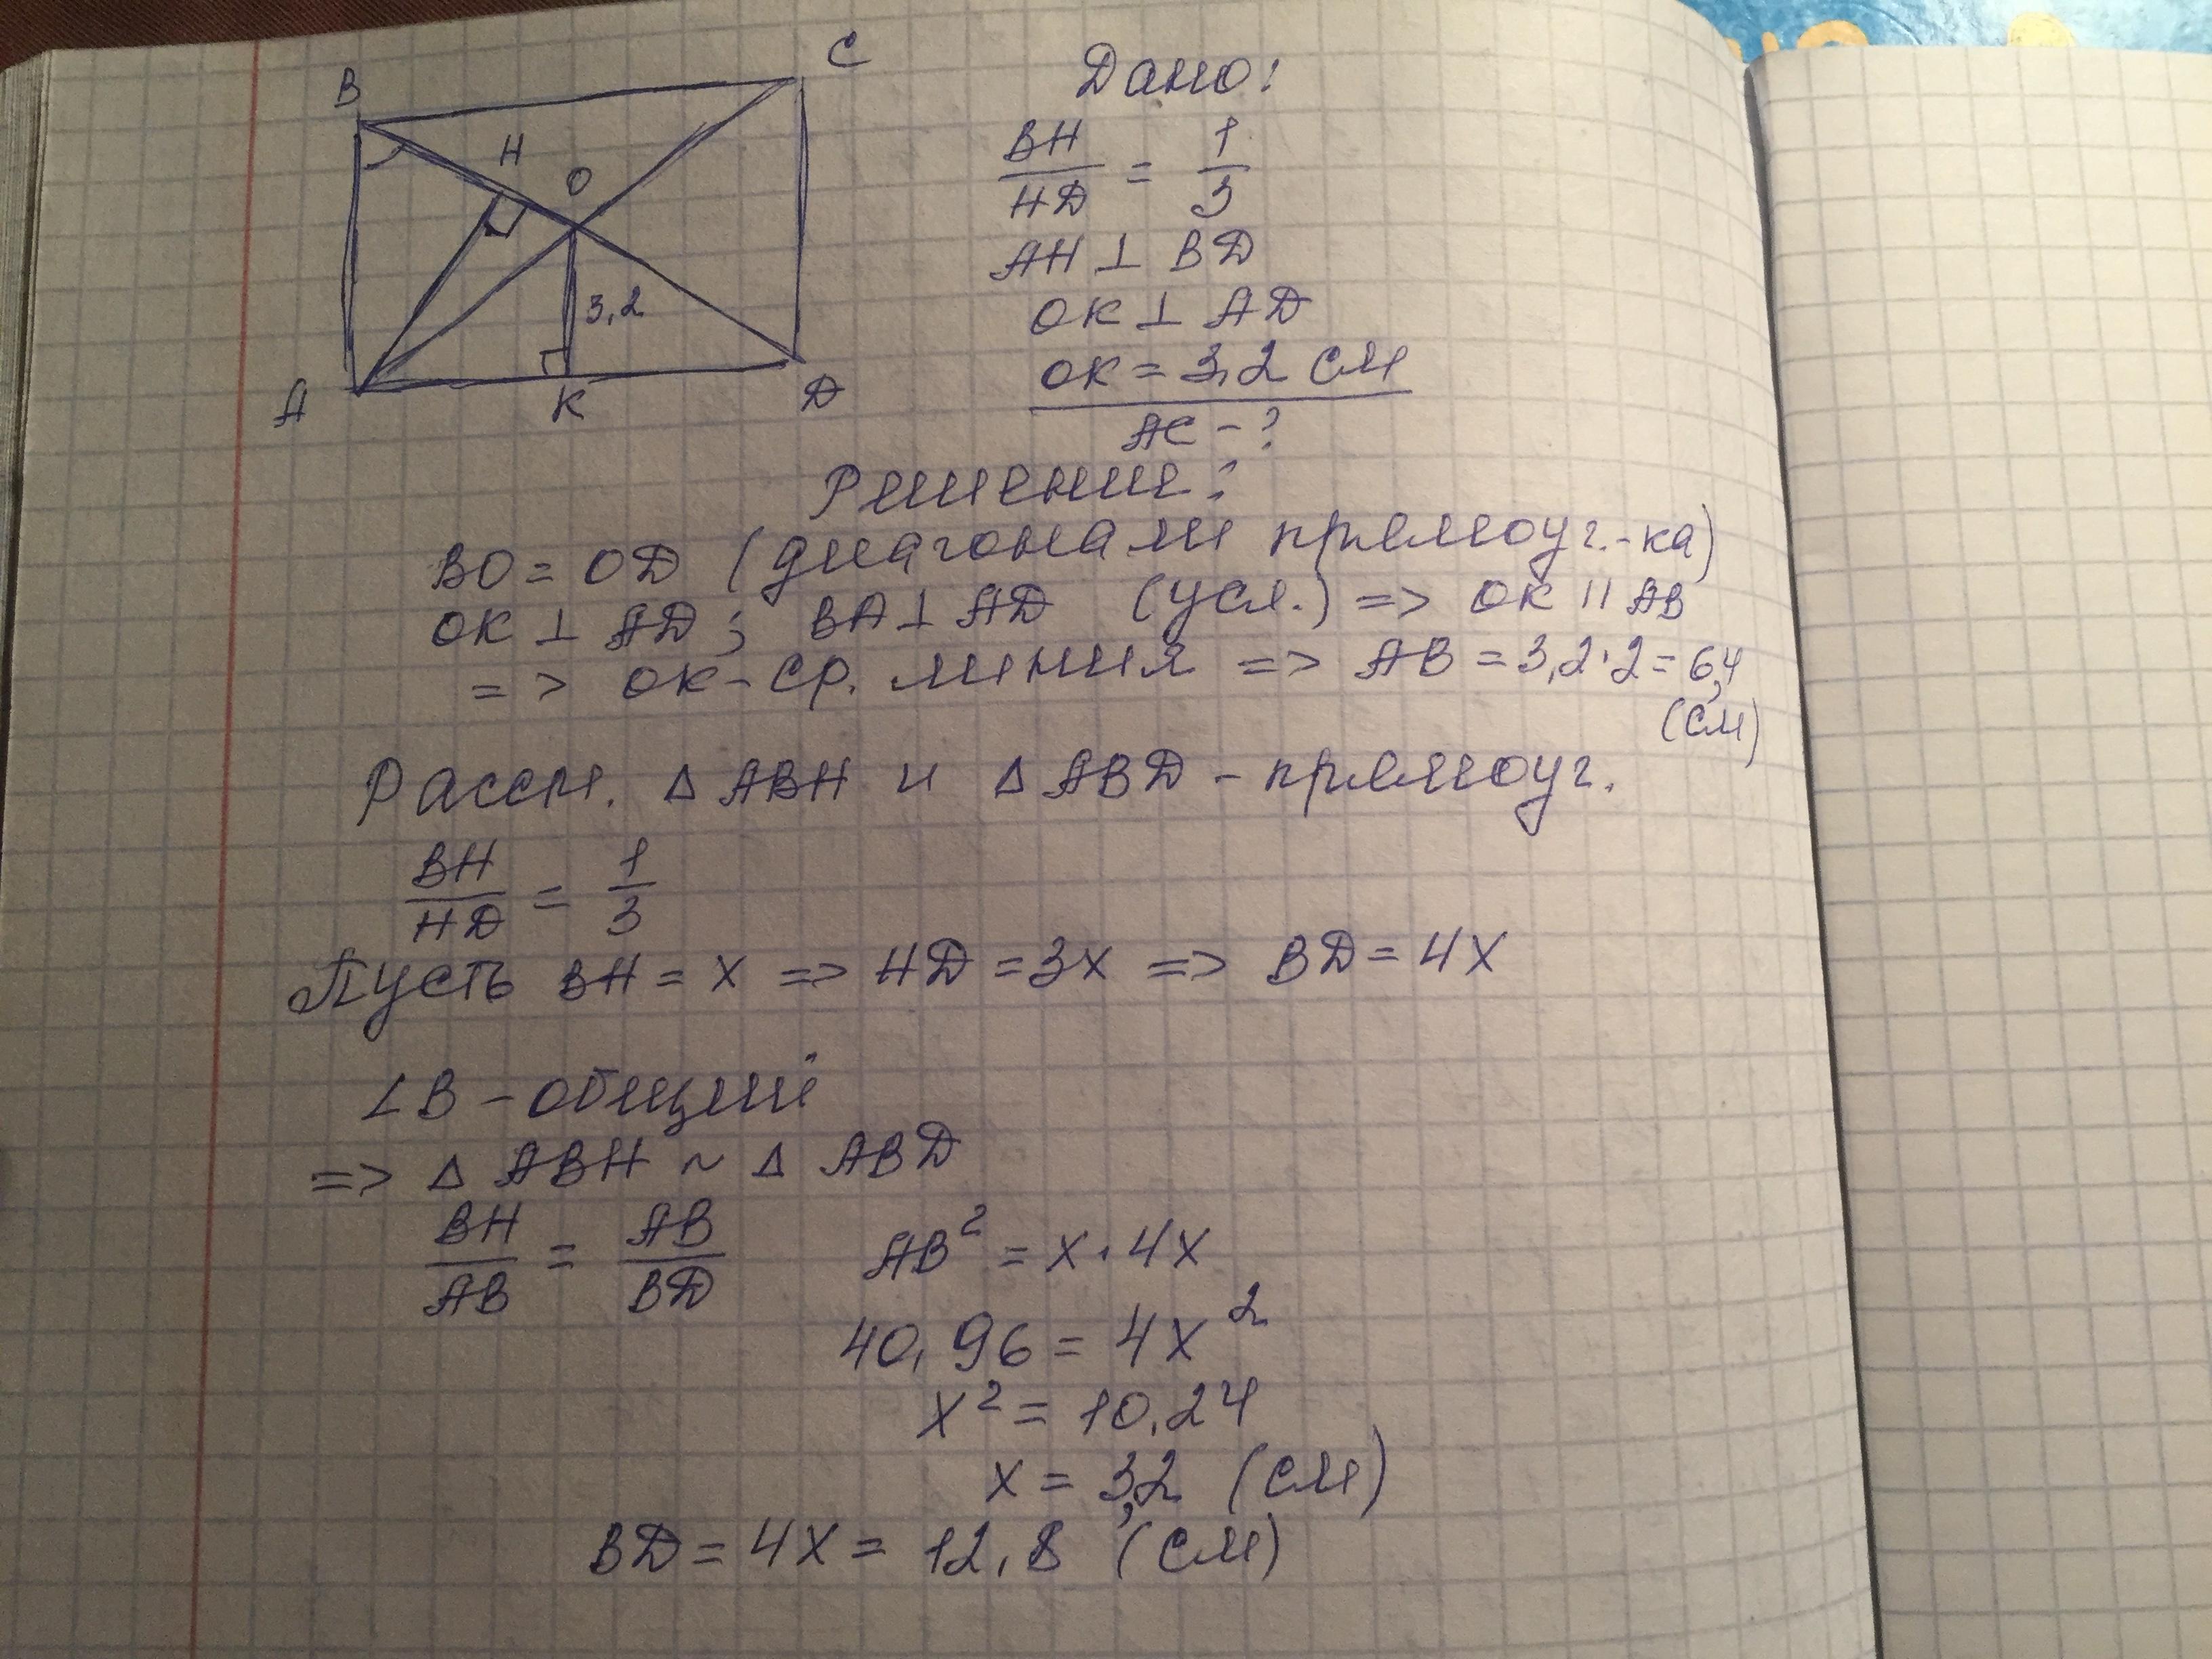 B
C
H
O
3,2
A
K
D
Дано:
BH/HD = 1/3
AH ⊥ BD
OK ⊥ AD
OK = 3,2 см
AC - ?
Решение:
BO = OD (диагонали прямоуг.-ка)
OK ⊥ AD; BA ⊥ AD (усл.) => OK || AB
=> OK - ср. линия => AB = 3,2·2 = 6,4
(см)
Рассм. Δ ABH и Δ ABD - прямоуг.
BH/HD = 1/3
Пусть BH = x => HD = 3x => BD = 4x
∠B - общий
=> Δ ABH ~ Δ ABD
BH/AB = AB/BD AB² = x·4x
40,96 = 4x²
x² = 10,24
x = 3,2 (см)
BD = 4x = 12,8 (см)